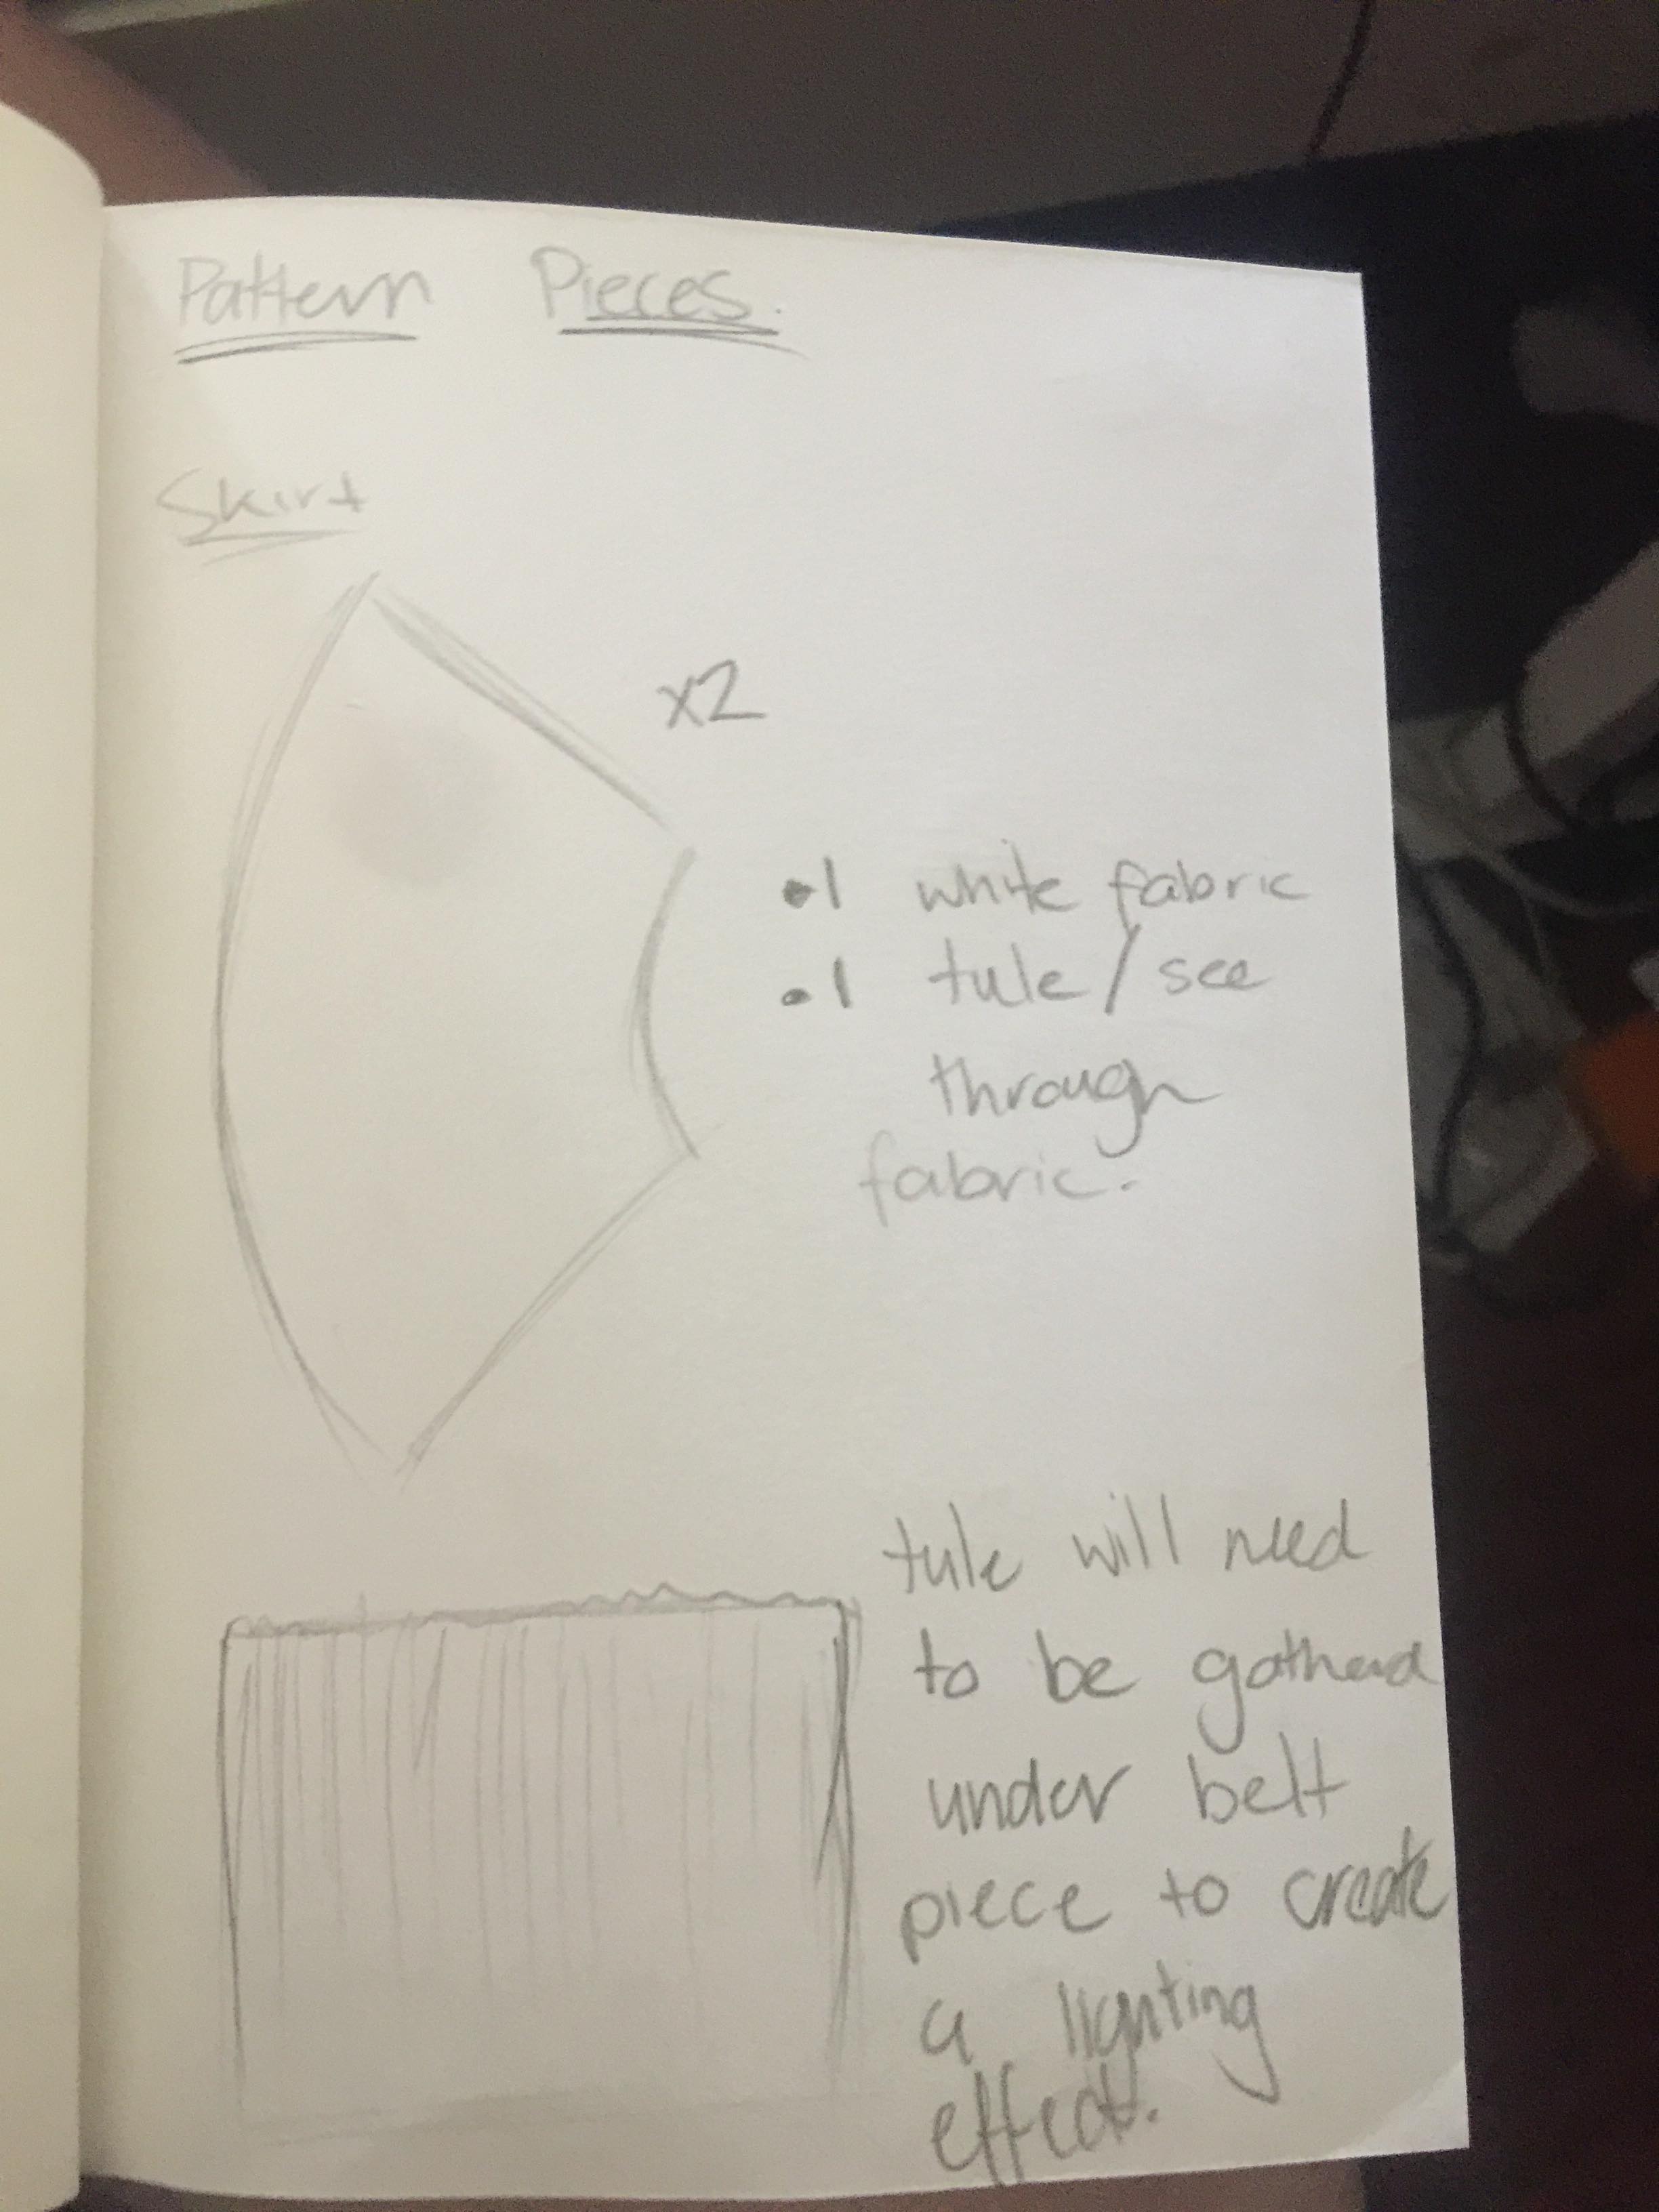 Pattern Pieces.
Skirt
x2
•1 white fabric
•1 tule/see
through
fabric.
tule will need
to be gathered
under belt
piece to create
a lighting
effect.